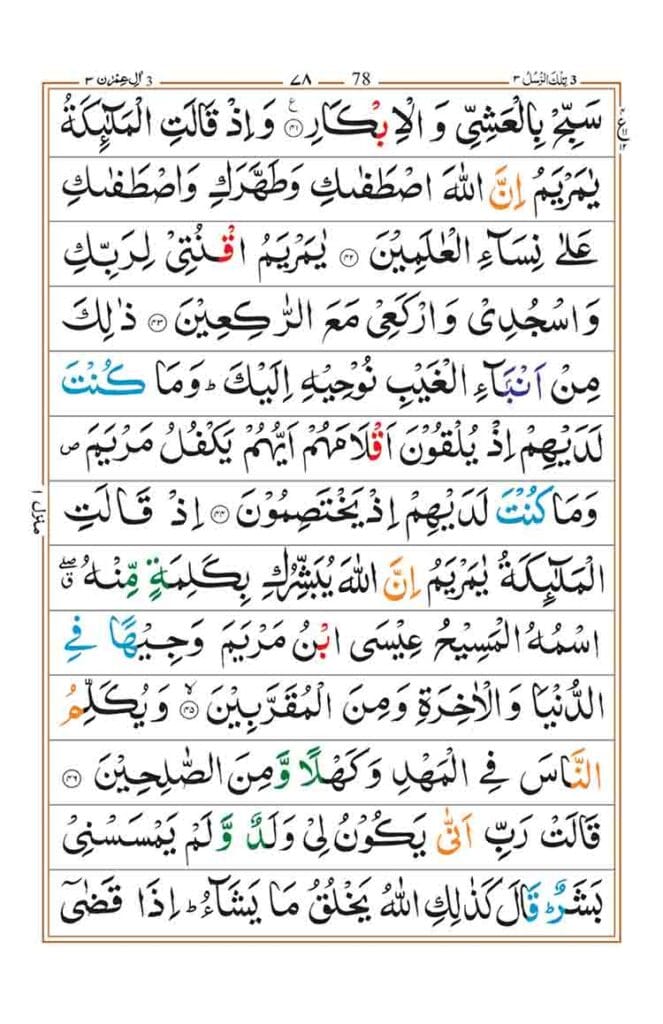 اٰل عمرٰن ٣ 3 ٧٨ 78 3 تِلْكَ الرُّسُلُ ٣
سَبِّحْ بِالْعَشِيِّ وَ الْاِبْكَارِ ﴿٤١﴾ ع وَ اِذْ قَالَتِ الْمَلٰٓئِكَةُ
يٰمَرْيَمُ اِنَّ اللّٰهَ اصْطَفٰىكِ وَطَهَّرَكِ وَاصْطَفٰىكِ
عَلٰى نِسَآءِ الْعٰلَمِيْنَ ﴿٤٢﴾ يٰمَرْيَمُ اقْنُتِيْ لِرَبِّكِ
وَاسْجُدِيْ وَارْكَعِيْ مَعَ الرّٰكِعِيْنَ ﴿٤٣﴾ ذٰلِكَ
مِنْ اَنْۢبَآءِ الْغَيْبِ نُوْحِيْهِ اِلَيْكَ ؕ وَمَا كُنْتَ
لَدَيْهِمْ اِذْ يُلْقُوْنَ اَقْلَامَهُمْ اَيُّهُمْ يَكْفُلُ مَرْيَمَ ص
وَمَا كُنْتَ لَدَيْهِمْ اِذْ يَخْتَصِمُوْنَ ﴿٤٤﴾ اِذْ قَالَتِ
الْمَلٰٓئِكَةُ يٰمَرْيَمُ اِنَّ اللّٰهَ يُبَشِّرُكِ بِكَلِمَةٍ مِّنْهُ ۖق
اسْمُهُ الْمَسِيْحُ عِيْسَى ابْنُ مَرْيَمَ وَجِيْهًا فِي
الدُّنْيَا وَالْاٰخِرَةِ وَمِنَ الْمُقَرَّبِيْنَ ۙ﴿٤٥﴾ وَيُكَلِّمُ
النَّاسَ فِي الْمَهْدِ وَكَهْلًا وَّمِنَ الصّٰلِحِيْنَ ﴿٤٦﴾
قَالَتْ رَبِّ اَنّٰى يَكُوْنُ لِيْ وَلَدٌ وَّلَمْ يَمْسَسْنِيْ
بَشَرٌ ؕ قَالَ كَذٰلِكِ اللّٰهُ يَخْلُقُ مَا يَشَآءُ ؕ اِذَا قَضٰٓى
منزل ١